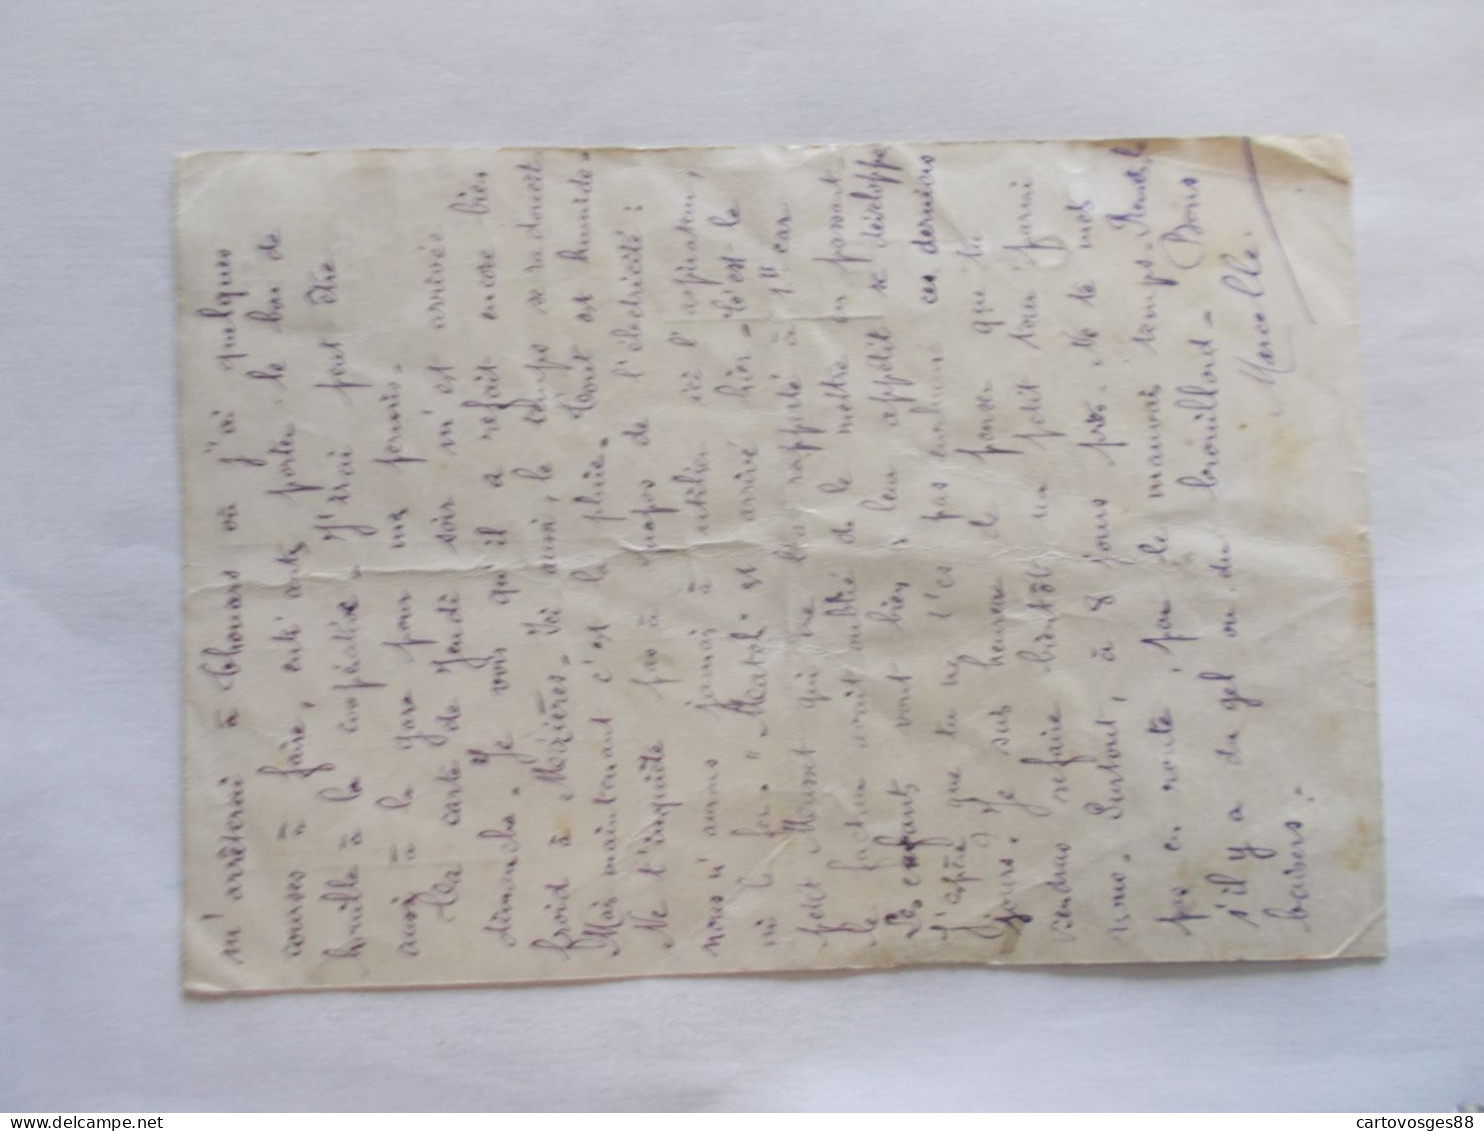 m'arrêterai à Thouars où j'ai quelques
courses à faire, entr'autres porter le bon de
houille à la coopérative. J'irai peut-être
aussi à la gare pour ma permis.
Ta carte de Jeudi soir m'est arrivée
dimanche. Je vois qu'il a refait encore bien
froid à Mézières. Ici aussi, le temps se radoucit.
Mais maintenant c'est la pluie. Tout est humide.
Ne t'inquiète pas à propos de l'électricité :
nous n'avons jamais à utiliser ici l'aspirateur,
ni le fer. "Match" est arrivé hier. C'est le
petit Mousset qui me l'a rapporté à 1h car
le facteur avait oublié de le mettre en passant.
Les enfants vont bien ; leur appétit se développe
j'espère que tu ne t'es pas enrhumé ces derniers
jours. Je suis heureuse de penser que tu
viendras refaire bientôt un petit tour parmi
nous. Surtout, à 8 jours près. Ne te mets
pas en route par le mauvais temps. Remets le
s'il y a du gel ou du brouillard. Bons
baisers.
Marcelle.
cartovosges88